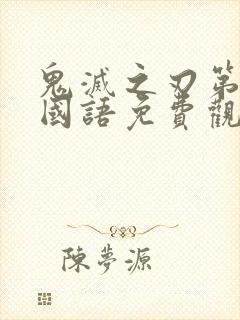 鬼滅之刃第
國語免費觀
陳夢源